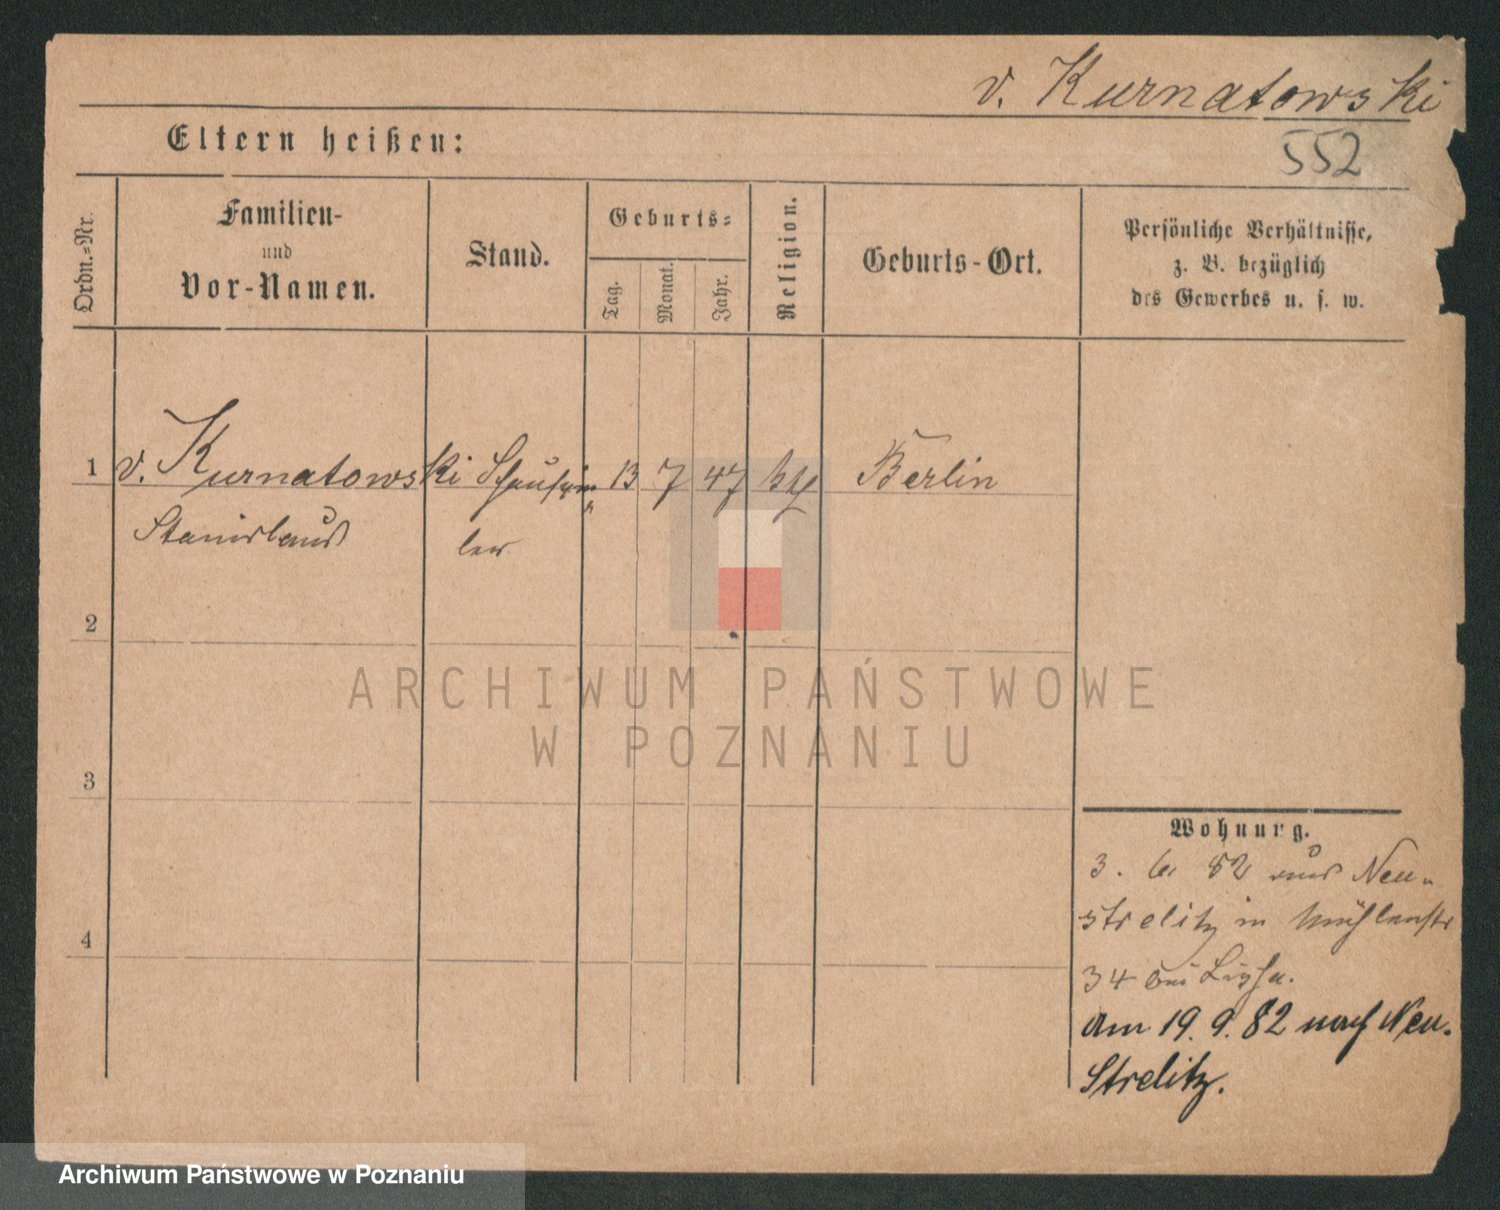 v. Kurnatowski
Eltern heißen:
552
Ordn.=Nr.
Familien-
und
Vor-Namen.
Stand.
Geburts=
Tag.
Monat.
Jahr.
Religion.
Geburts-Ort.
Persönliche Verhältnisse,
z. B. bezüglich
des Gewerbes u. s. w.
1 v. Kurnatowski Schauspie= 13 7 47 kth Berlin
Stanislaus ler
2
ARCHIWUM PAŃSTWOWE
W POZNANIU
3
Wohnung.
3. 6 82 aus Neu-
strelitz in Mühlenstr
34 bei
4
am 19. 9. 82 nach Neu-
Strelitz.
Archiwum Państwowe w Poznaniu